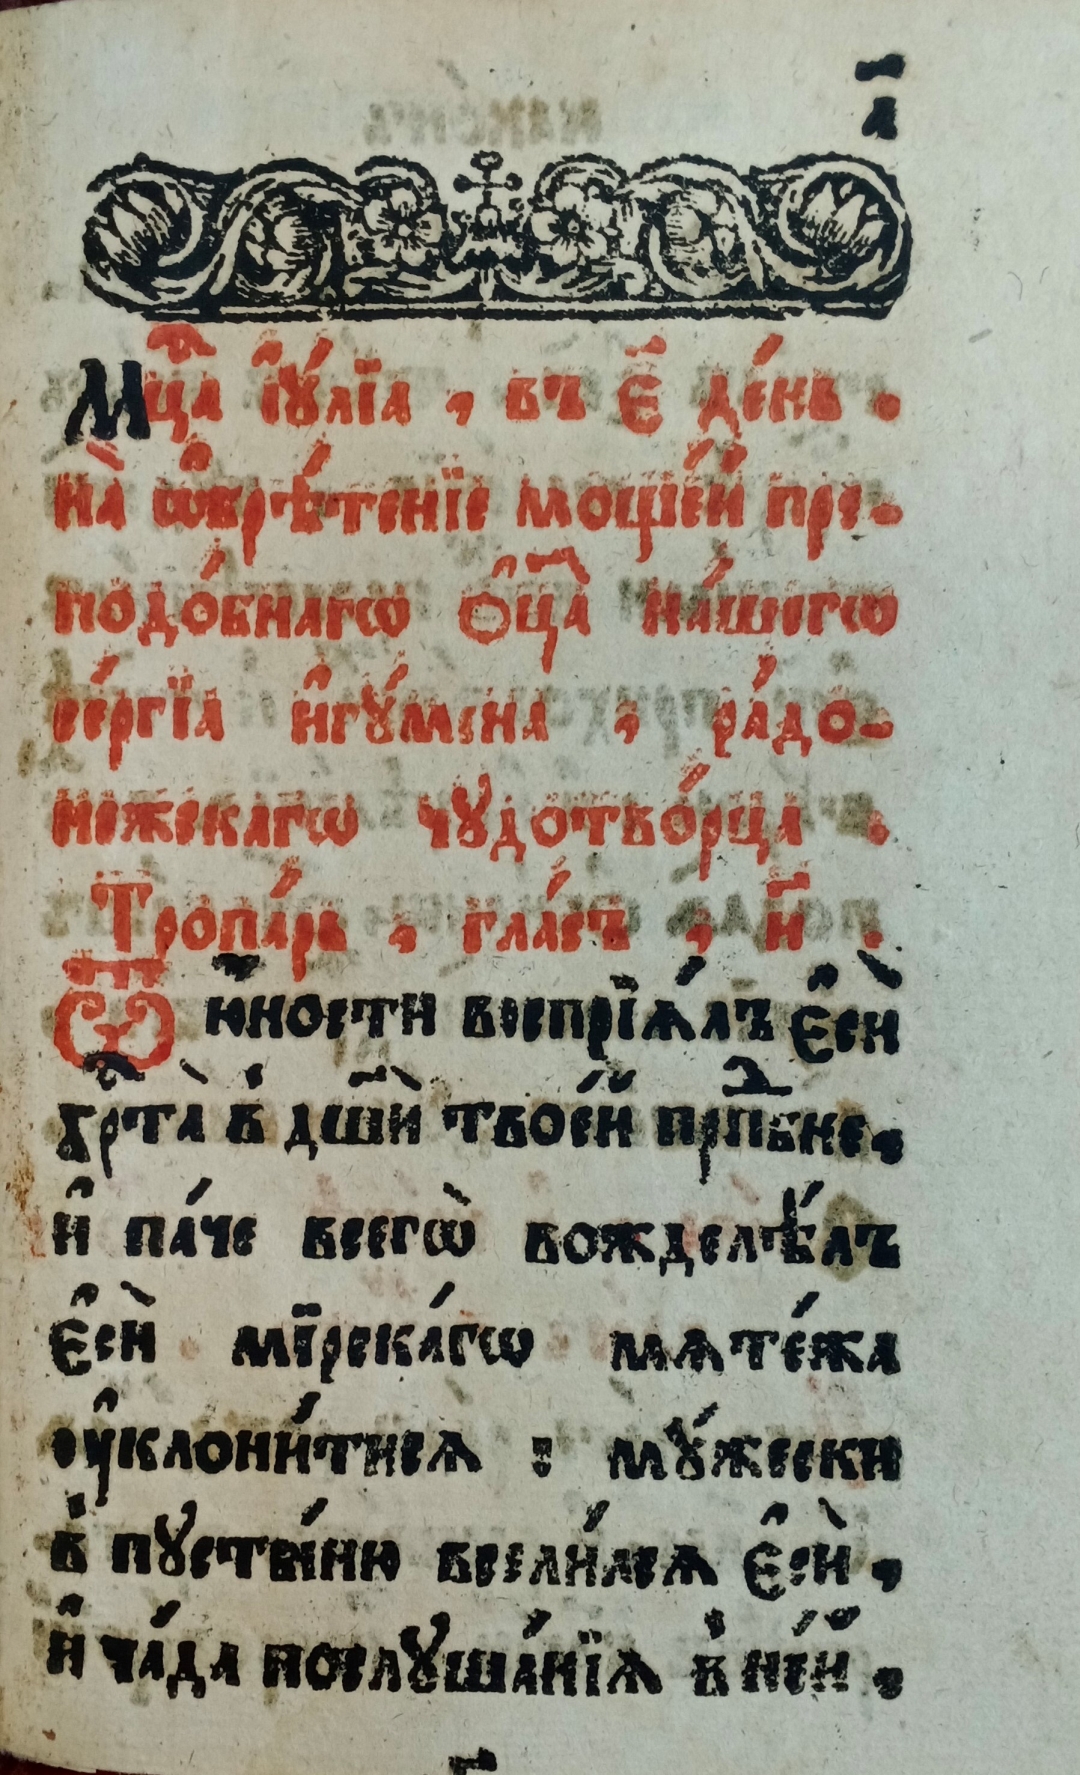 а҃
Мц҃а і҆ꙋ́лїа, въ е҃ де́нь.
на̀ ѡ҆брѣ́тенїе моще́й пре-
подо́бнагѡ о҆ц҃а̀ на́шегѡ
се́ргїѧ и҆гꙋ́мена, ра́до-
нежскагѡ чꙋдотво́рца.
Тропа́рь, гла́съ, и҃.
Ѿ ю҆ности воспрїѧ́лъ є҆сѝ
хрⷭ҇та̀ в҆ дш҃ѝ твое́й прпⷣбне,
и҆ па́че всегѡ̀ вождєлѣ́лъ
є҆сѝ мїрска́гѡ мѧте́жа
ᲂу҆клони́тисѧ: мꙋ́жески
в҆ пꙋсты́ню всели́лсѧ є҆сѝ,
и҆ ча́да послꙋша́нїѧ в҆ не́й,